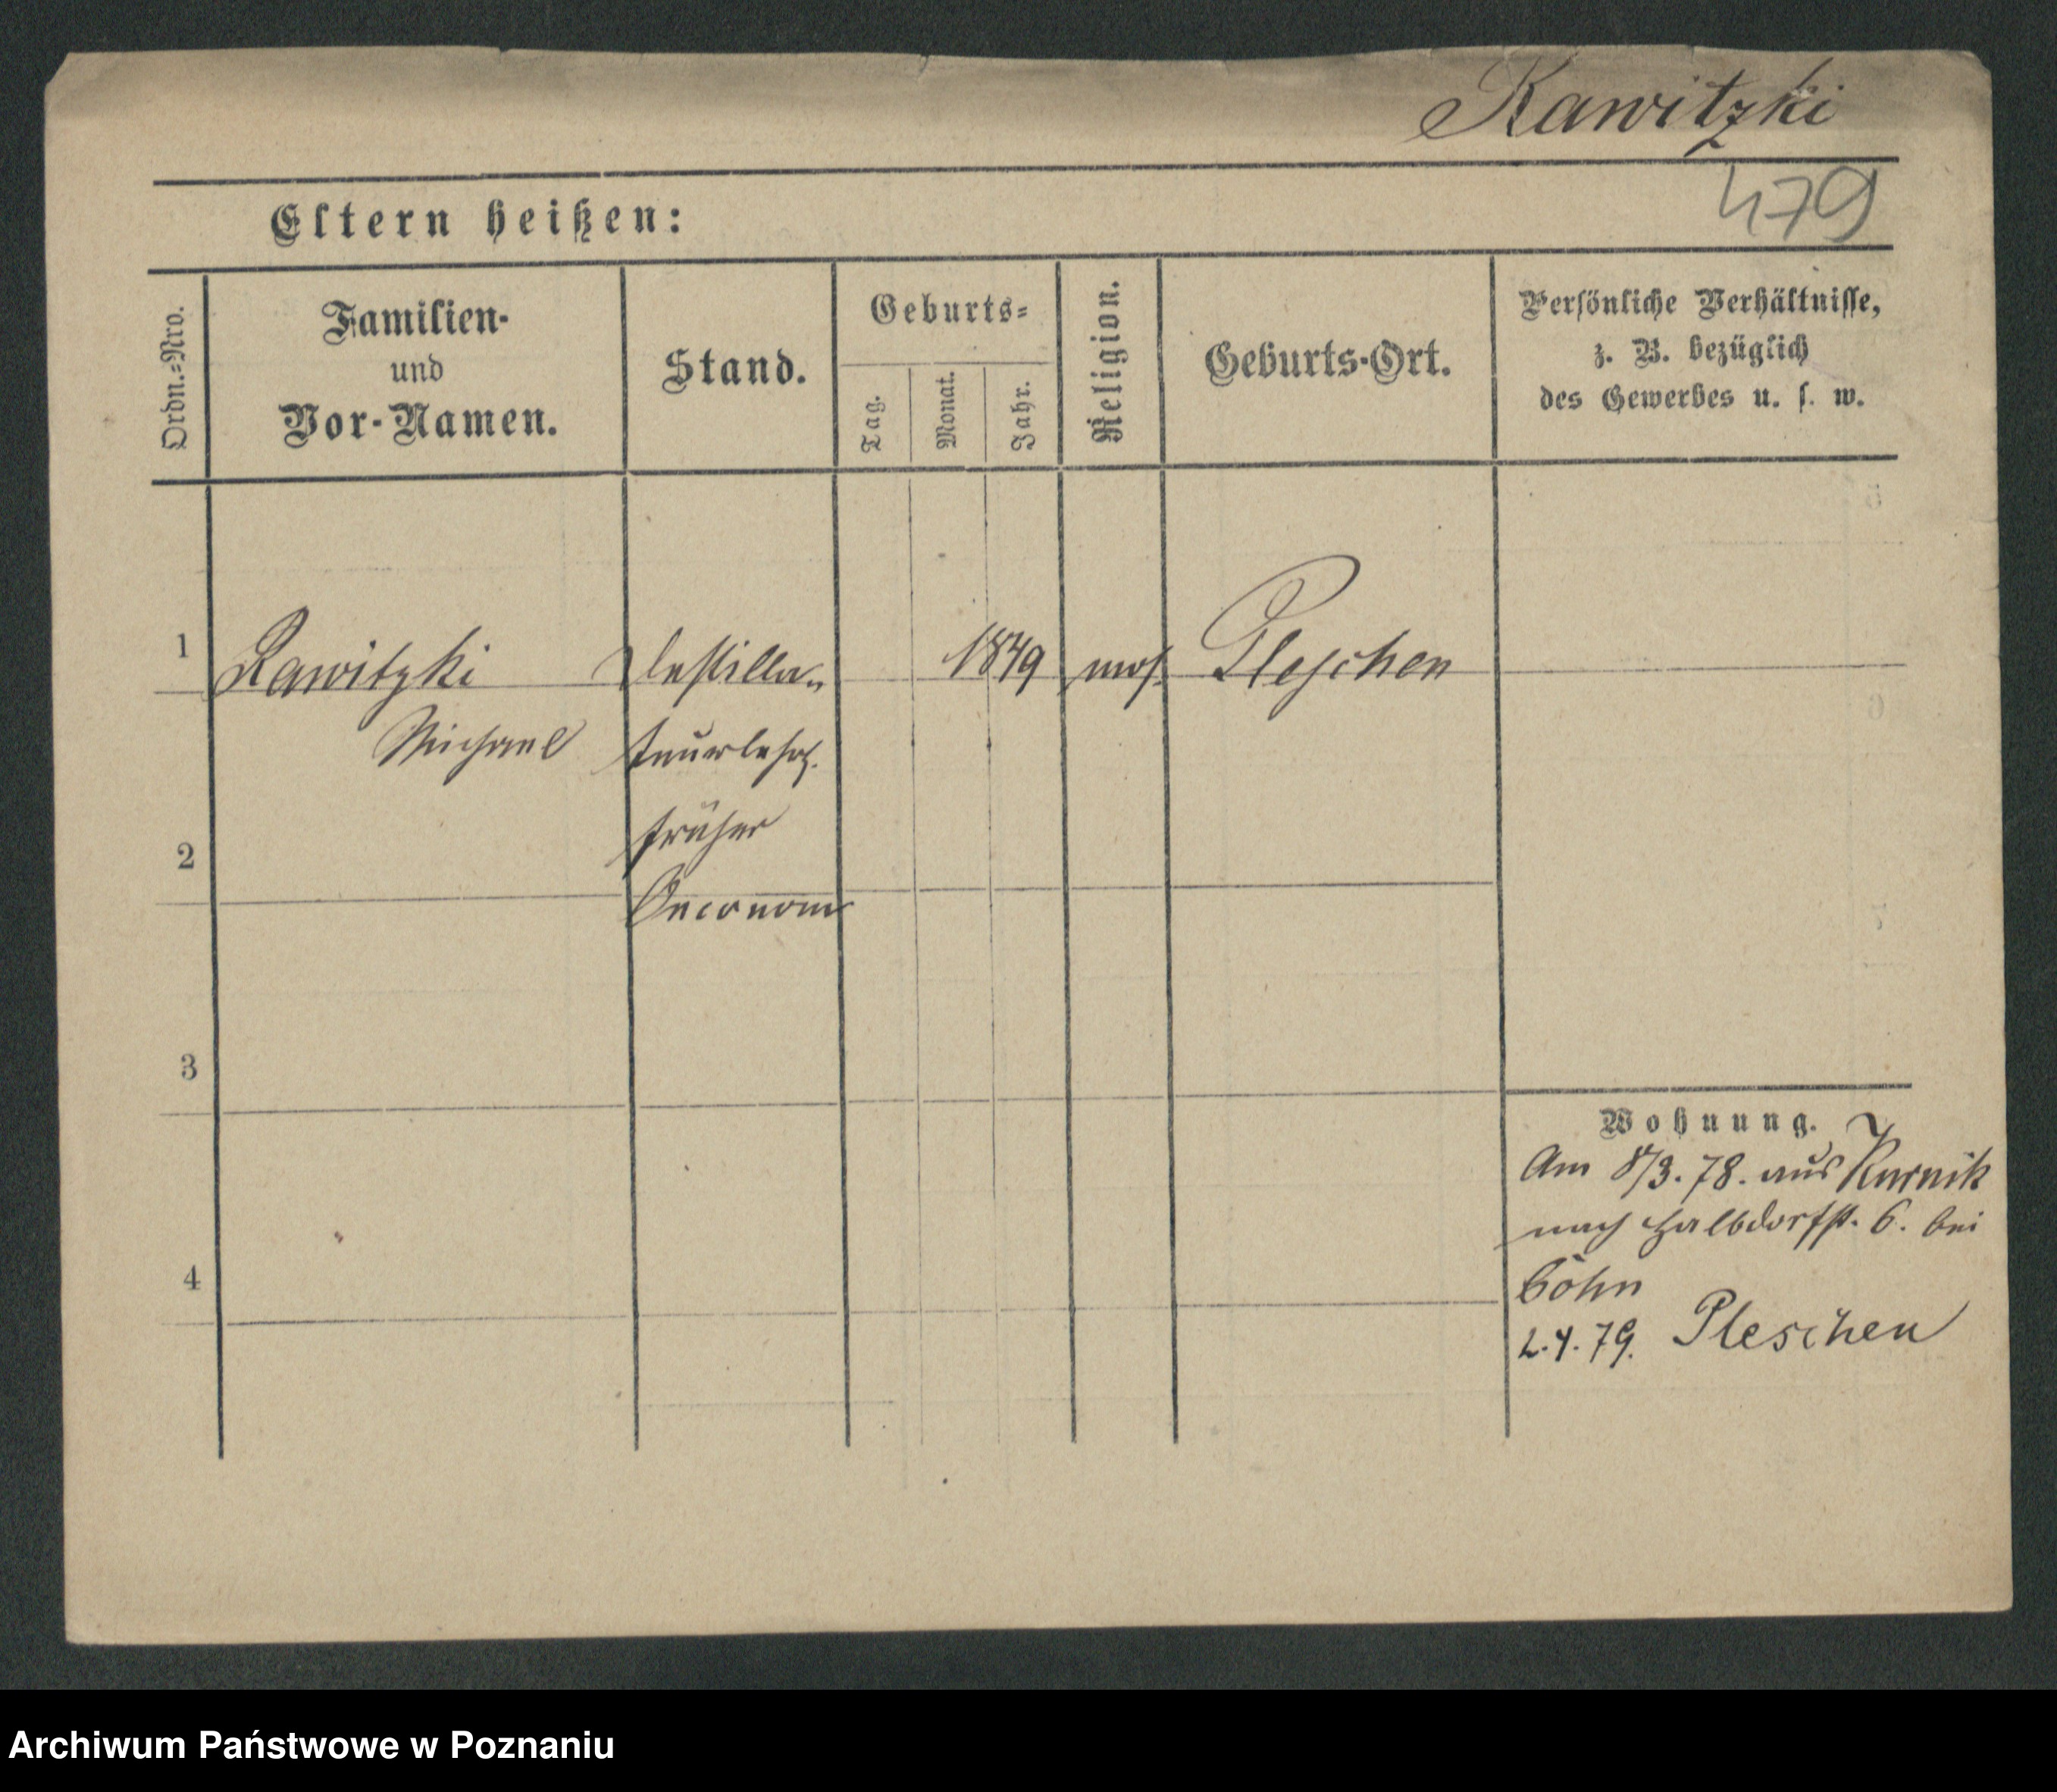 Rawitzki
479
Eltern heißen:
Ordn.=Nro.
Familien-
und
Vor-Namen.
Stand.
Geburts=
Tag.
Monat.
Jahr.
Religion.
Geburts-Ort.
Persönliche Verhältnisse,
z. B. bezüglich
des Gewerbes u. s. w.
1 Rawitzki Destilla- 1849 mos. Pleschen
Michael
früher
Oeconom
2
3
4
Wohnung.
Am 8/3. 78. aus Kurnik
nach Halbdorfst. 6. bei
Böhn
2.4.79. Pleschen
Archiwum Państwowe w Poznaniu